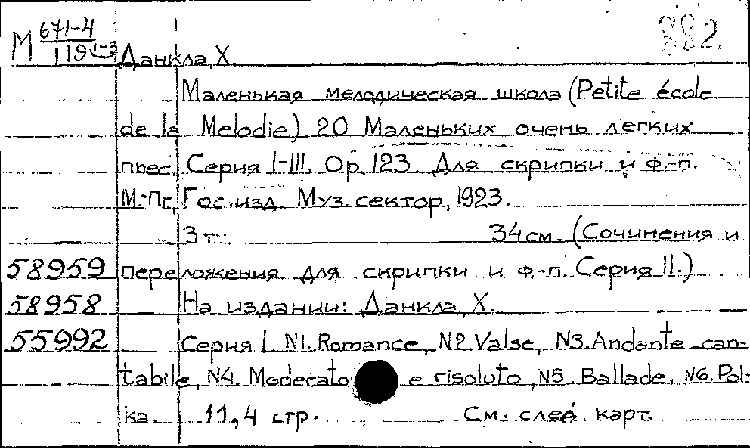 М 671-4 882.
119 1-3 Данкла, Х
Маленькая мелодическая школа (Petite école
de la Melodie) 20 Маленьких очень легких
пьес. Серия I-III. Op. 123 Для скрипки и ф-п.
М.-Пг, Гос. изд. Муз. сектор, 1923.
3 т. 34 см. (Сочинения и
58959 переложения для скрипки и ф-п. Серия II.)
58958 На издании: Данкла, Х.
55992 Серия I. N1. Romance, N2. Valse, N3. Andante can-
tabile, N4. Moderato e risoluto, N5. Ballade, N6. Pol-
ka. 11,4 стр. См. след. карт.